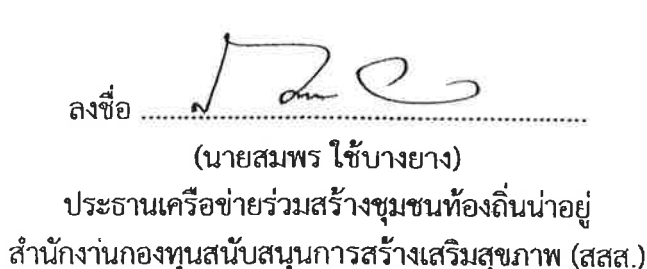 ลงชื่อ ........................................................
(นายสมพร ใช้บางยาง)
ประธานเครือข่ายร่วมสร้างชุมชนท้องถิ่นน่าอยู่
สำนักงานกองทุนสนับสนุนการสร้างเสริมสุขภาพ (สสส.)